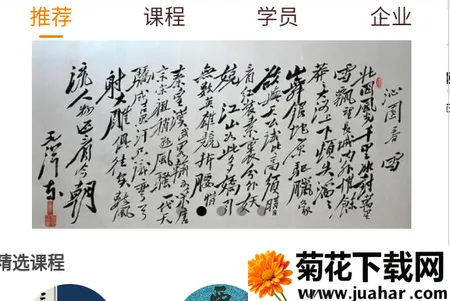 推荐 课程 学员 企业
沁园春 雪
北国风光千里冰封万里
雪飘望长城内外惟馀
莽莽大河上下顿失滔滔
山舞银蛇原驰腊象
欲与天公试比高须晴
看红装素裹分外妖
娆江山如此多娇引
无数英雄竞折腰惜
秦皇汉武略输文采唐
宗宋祖稍逊风骚一代天
骄成吉思汗只识弯弓
射大雕俱往矣数风
流人物还看今朝
毛泽东
精选课程
菊花下载网
www.juahar.com